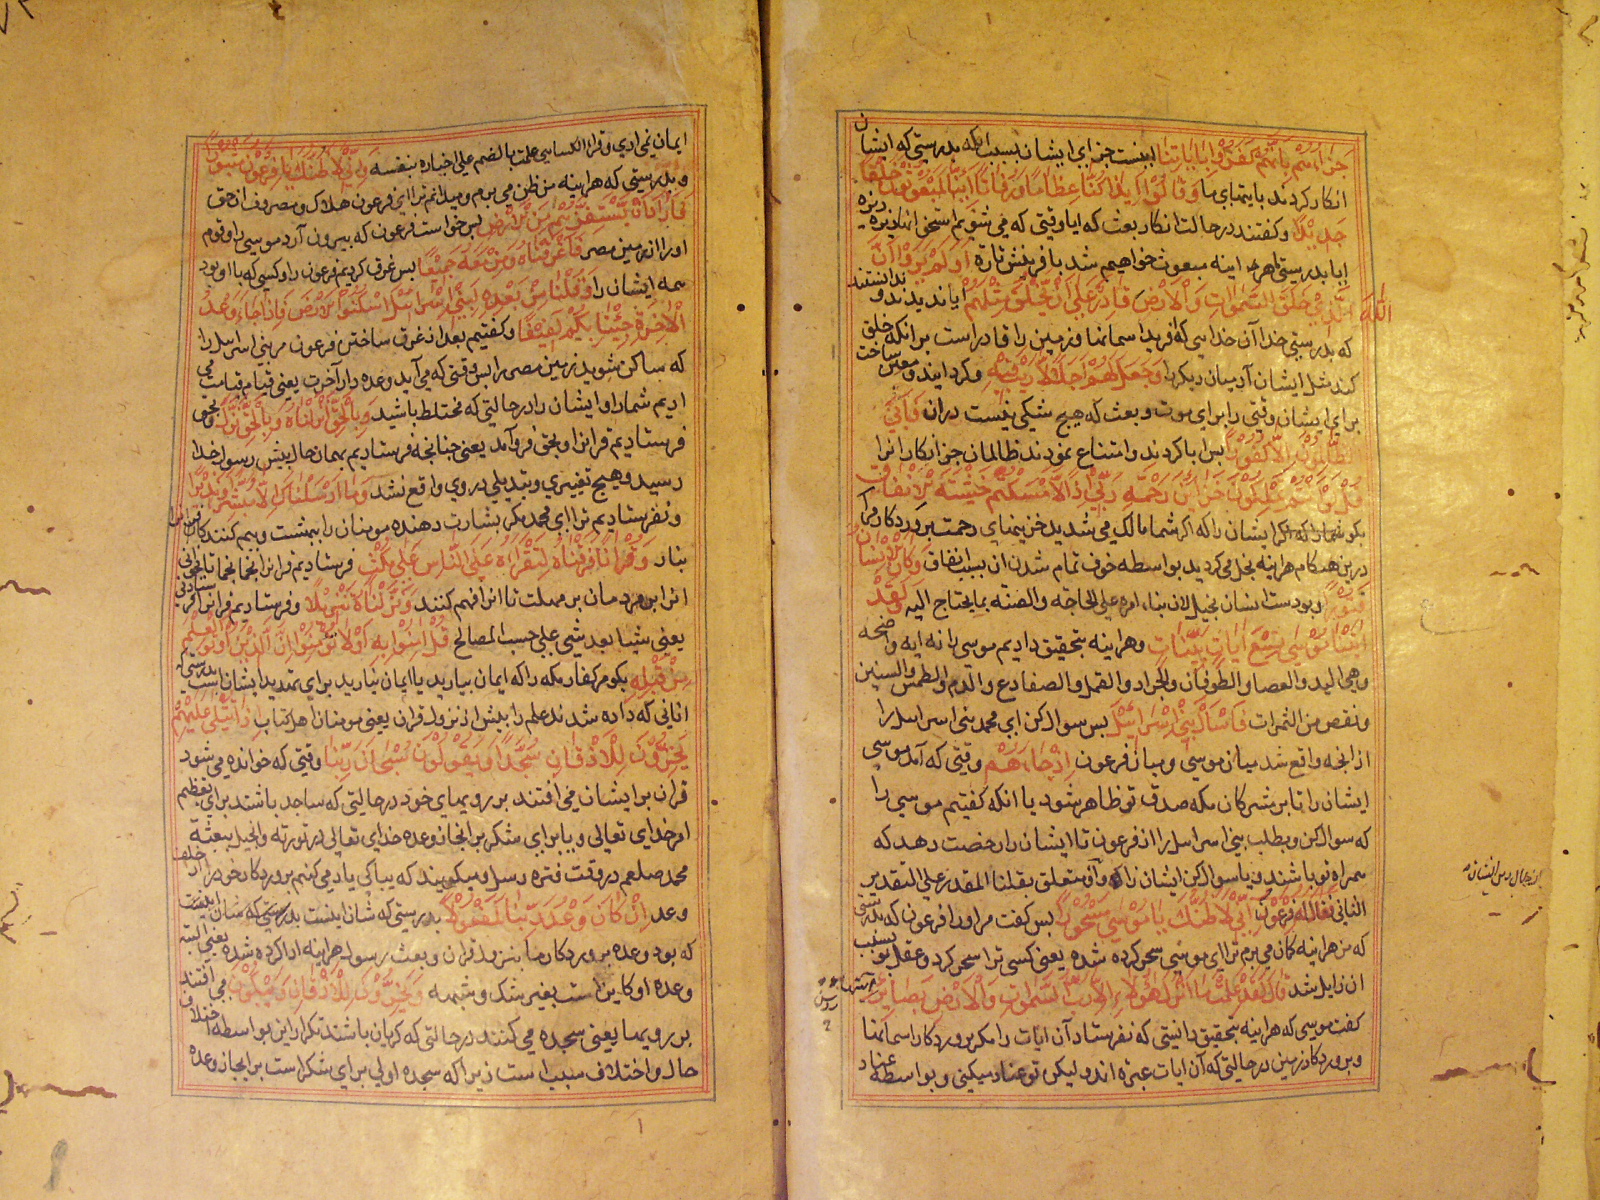 جزاؤهم بانهم كفروا باياتنا اينست جزاي ايشان بسبب انكه بدرستي كه ايشان
انكار كردند بايتهاي ما وقالوا ءاذا كنا عظاما ورفاتا ءانا لمبعوثون خلقا
جديدا وكفتند در حالت انكار بعث كه ايا وقتي كه مي شويم استخوانها ريزه ريزه
ايا بدرستي هر اينه مبعوث خواهيم شد بافرينش تازه اولم يروا ان
الله الذي خلق السموات والارض قادر علي ان يخلق مثلهم ايا نديدند وندانستند
كه بدرستي خدا آن خدايي كه آفريد اسمانها و زمين را قادر است بر انكه خلق
كند مثل ايشان آدميان ديكر را وجعل لهم اجلا لا ريب فيه وكردانيد ومعين ساخت
براي ايشان وقتي را براي موت و بعث كه هيچ شكي نيست دران فابي
الظالمون الا كفورا پس ابا كردند وامتناع نمودند ظالمان جز انكار انرا
قل لو انتم تملكون خزائن رحمة ربي اذا لامسكتم خشية الانفاق
بكو شمارا كه اكر ايشان را كه اكر شما مالك مي شديد خزينهاي رحمت پروردكار مرا
درين هنكام هر اينه بخل مي كرديد بواسطه خوف تمام شدن ان بسبب انفاق وكان الانسان
قتورا وبودست انسان بخيل لان بناء امره علي الحاجه والضنه بما يحتاج اليه ولقد
اتينا موسي تسع ايات بينات وهر اينه بتحقيق داديم موسي را نه ايه واضحه
وهي اليد والعصا والطوفان والجراد والقمل والضفادع والدم والطمس والسنين
ونقص من الثمرات فاسأل بني اسرائيل پس سوال كن اي محمد بني اسرائيل را
از انچه واقع شد ميان موسي وميان فرعون اذ جاءهم وقتي كه آمد موسي
ايشان را تا بر مشركان مكه صدق تو ظاهر شود يا انكه كفتيم موسي را
كه سوال كن وبطلب بني اسرائيل را از فرعون تا ايشان را رخصت دهد كه
همراه تو باشند ويا سوال كن ايشان را كه واذ متعلق بقلنا المقدر علي التقدير
الثاني فقال له فرعون اني لاظنك يا موسي مسحورا پس كفت مر اورا فرعون كه بدرستي
كه من هر اينه كمان مي برم ترا اي موسي سحر كرده شده يعني كسي ترا سحر كرد وعقل تو بسبب
ان زايل شد قال لقد علمت ما انزل هؤلاء الا رب السموات والارض بصائر
كفت موسي كه هر اينه بتحقيق دانستي كه نفرستاد آن ايات را مكر پروردكار اسمانها
وپروردكار زمين در حالتي كه آن ايات عبره اند وليكن تو عناد ميكني وبواسطه عناد
ايمان نمي اري وقرا الكسايي علمت بالضم علي اخباره بنفسه واني لاظنك يا فرعون مثبورا
وبدرستي كه هر اينه من ظن مي برم وميدانم ترا اي فرعون هلاك ومصروف از حق
فاراد ان يستفزهم من الارض پس خواست فرعون كه بيرون آرد موسي را وقوم
اورا از زمين مصر فاغرقناه ومن معه جميعا پس غرق كرديم فرعون را وكسي كه با او بود
همه ايشان را وقلنا من بعده لبني اسرائيل اسكنوا الارض فاذا جاء وعد
الاخرة جئنا بكم لفيفا وكفتيم بعد از غرق ساختن فرعون مر بني اسرائيل را
كه ساكن شويد زمين مصر را پس وقتي كه مي آيد وعده دار آخرت يعني قيام قيامت مي
اريم شمارا وايشان را در حالتي كه مختلط باشيد وبالحق انزلناه وبالحق نزل وبحق
فرستاديم قرانرا وبحق فرو آمد يعني چنانچه فرستاديم بهمان حال پيش رسول خدا
رسيد وهيچ تغييري وتبديلي در وي واقع نشد وما ارسلناك الا مبشرا ونذيرا
ونفرستاديم ترا اي محمد مكر بشارت دهنده مومنان را ببهشت وبيم كننده كافران را
بنار وقرانا فرقناه لتقراه علي الناس علي مكث فرستاديم قرانرا نجما نجما تا بخواني
انرا بر مردمان بر مهلت تا انرا فهم كنند ونزلناه تنزيلا وفرستاديم قرانرا فرستادني
يعني شيئا بعد شئ علي حسب المصالح قل امنوا به اولا تؤمنوا ان الذين اوتوا العلم
من قبله بكو مر كفار مكه را كه ايمان بياريد يا ايمان نياريد براي تهديد ايشان است بدرستي كه
انانی كه داده شدند علم را پيش از نزول قران يعني مومنان اهل كتاب اذا يتلي عليهم
يخرون للاذقان سجدا ويقولون سبحان ربنا وقتي كه خوانده مي شود
قران بر ايشان مي افتند بر رويهاي خود در حالتي كه ساجد باشند براي تعظيم
امر خداي تعالي ويا براي شكر بر انجاز وعده خداي تعالي در توريه وانجيل ببعثة
محمد صلعم در وقت فتره رسل وميكويند كه بپاكي ياد مي كنيم پروردكار خودرا از خلف
وعد ان كان وعد ربنا لمفعولا بدرستي كه شان اينست بدرستي كه شان اينست
كه بود وعده پروردكار ما بنزول قران وبعث رسول هر اينه ادا كرده شده يعني البته
وعده او كاين است بغير شك وشبهه ويخرون للاذقان ويبكون مي افتند
بر رويها يعني سجده مي كنند در حالتي كه كريان باشند تكرار اين بواسطه اختلاف
حال واختلاف سبب است زيرا كه سجده اولي براي شكر است بر انجاز وعده